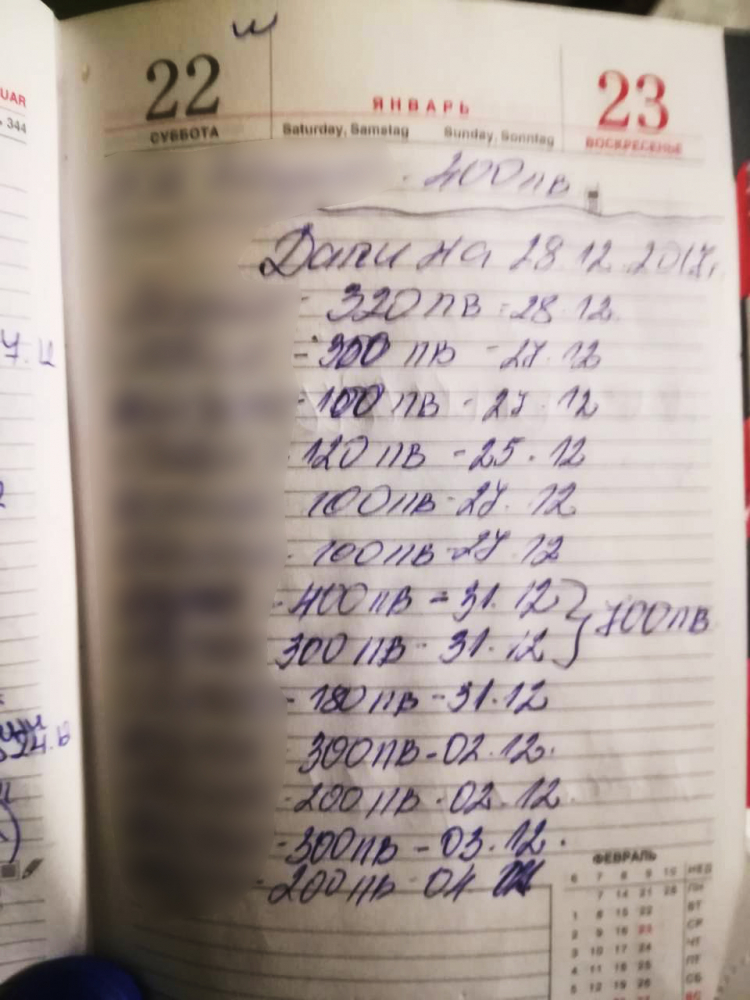 UAR
344
22
СУББОТА
ЯНВАРЬ
Saturday, Samstag Sunday, Sonntag
23
ВОСКРЕСЕНЬЕ
400 пв
на 28.12.2017г.
- 320 пв - 28.12.
- 300 пв - 27.12
- 100 пв - 27.12
120 пв - 25.12
100 пв - 27.12
100 пв - 27.12
- 400 пв = 31.12 } 700 пв
300 пв - 31.12
- 180 пв - 31.12
300 пв - 02.12.
- 200 пв - 02.12.
- 300 пв - 03.12.
- 200 пв - 04
ФЕВРАЛЬ
6 7 8 9 10 НЕД
7 14 21 28 ПН
1 8 15 22 ВТ
2 9 16 23 СР
3 10 17 24 ЧТ
4 11 18 25 ПТ
5 12 19 26 СБ